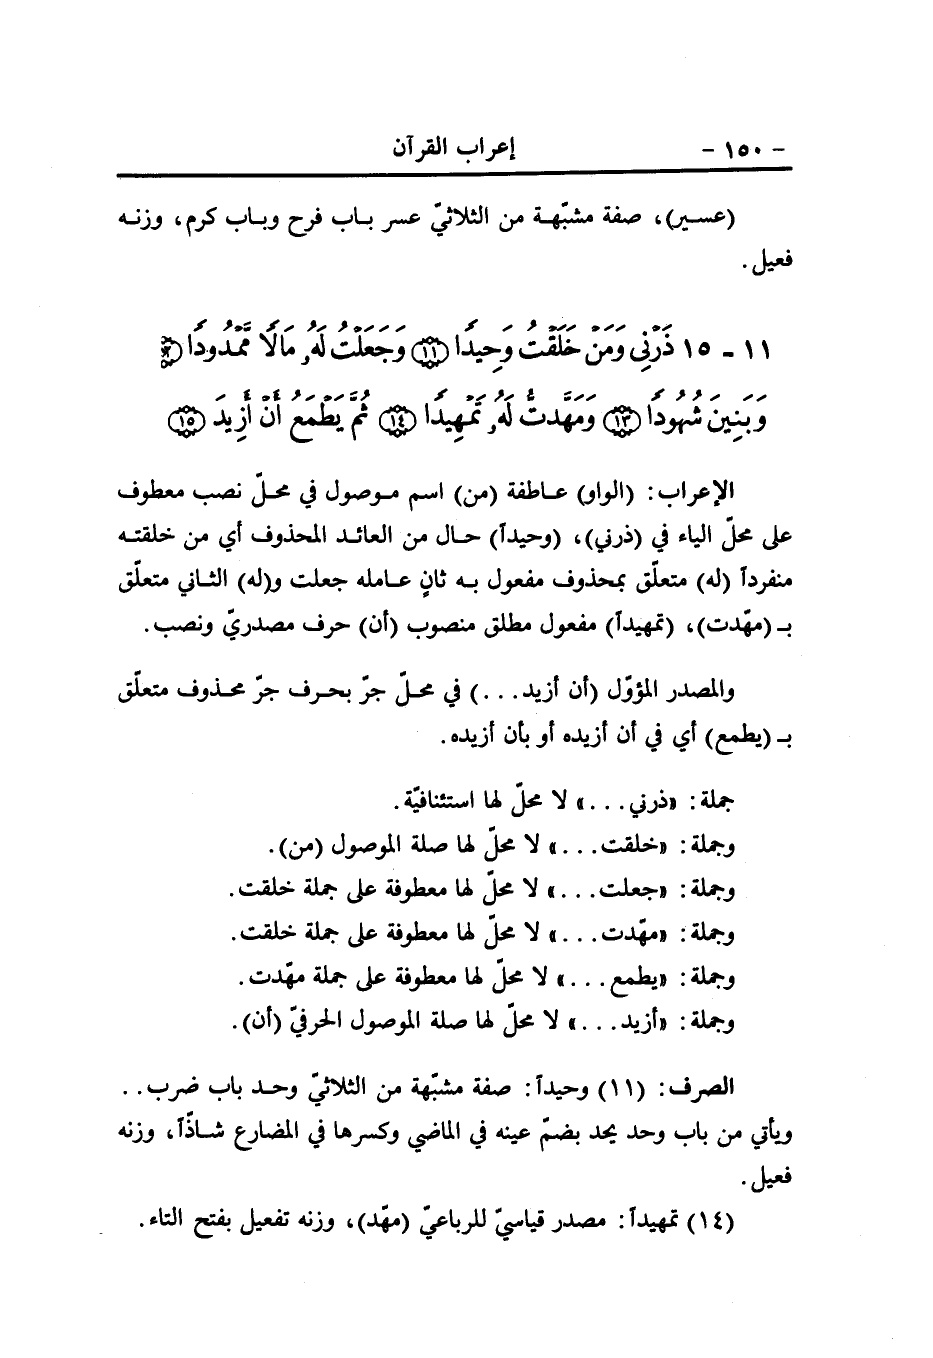 - ١٥٠ - إعراب القرآن
(عسير)، صفة مشبّهة من الثلاثيّ عسر باب فرح وباب كرم، وزنه
فعيل.
١١ - ١٥ ذَرْنِي وَمَنْ خَلَقْتُ وَحِيدًا ﴿١١﴾ وَجَعَلْتُ لَهُ مَالًا مَّمْدُودًا ﴿١٢﴾
وَبَنِينَ شُهُودًا ﴿١٣﴾ وَمَهَّدتُّ لَهُ تَمْهِيدًا ﴿١٤﴾ ثُمَّ يَطْمَعُ أَنْ أَزِيدَ ﴿١٥﴾
الإعراب: (الواو) عاطفة (من) اسم موصول في محلّ نصب معطوف
على محلّ الياء في (ذرني)، (وحيداً) حال من العائد المحذوف أي من خلقته
منفرداً (له) متعلّق بمحذوف مفعول به ثانٍ عامله جعلت و(له) الثاني متعلّق
بـ (مهّدت)، (تمهيداً) مفعول مطلق منصوب (أن) حرف مصدريّ ونصب.
والمصدر المؤوّل (أن أزيد...) في محلّ جرّ بحرف جرّ محذوف متعلّق
بـ (يطمع) أي في أن أزيده أو بأن أزيده.
جملة: «ذرني...» لا محلّ لها استئنافيّة.
وجملة: «خلقت...» لا محلّ لها صلة الموصول (من).
وجملة: «جعلت...» لا محلّ لها معطوفة على جملة خلقت.
وجملة: «مهّدت...» لا محلّ لها معطوفة على جملة خلقت.
وجملة: «يطمع...» لا محلّ لها معطوفة على جملة مهّدت.
وجملة: «أزيد...» لا محلّ لها صلة الموصول الحرفيّ (أن).
الصرف: (١١) وحيداً: صفة مشبّهة من الثلاثيّ وحد باب ضرب..
ويأتي من باب وحد يحد بضمّ عينه في الماضي وكسرها في المضارع شاذّاً، وزنه
فعيل.
(١٤) تمهيداً: مصدر قياسيّ للرباعيّ (مهّد)، وزنه تفعيل بفتح التاء.